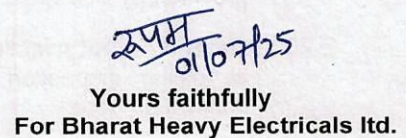 रूपम
01/07/25
Yours faithfully
For Bharat Heavy Electricals ltd.